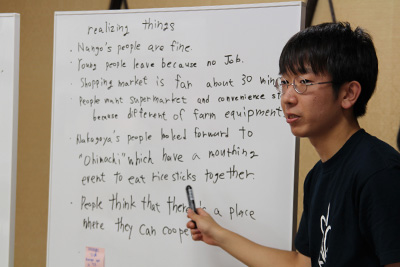 realizing things
· Nango's people are fine.
· Young people leave because no Job.
· Shopping market is far about 30 min
· People want supermarket and convenience st
because different of farm equipment
· Nakagoya's people looked forward to
"Ohimachi" which have a mouthing
event to eat rice sticks together.
· People think that there's a place
where they can coope